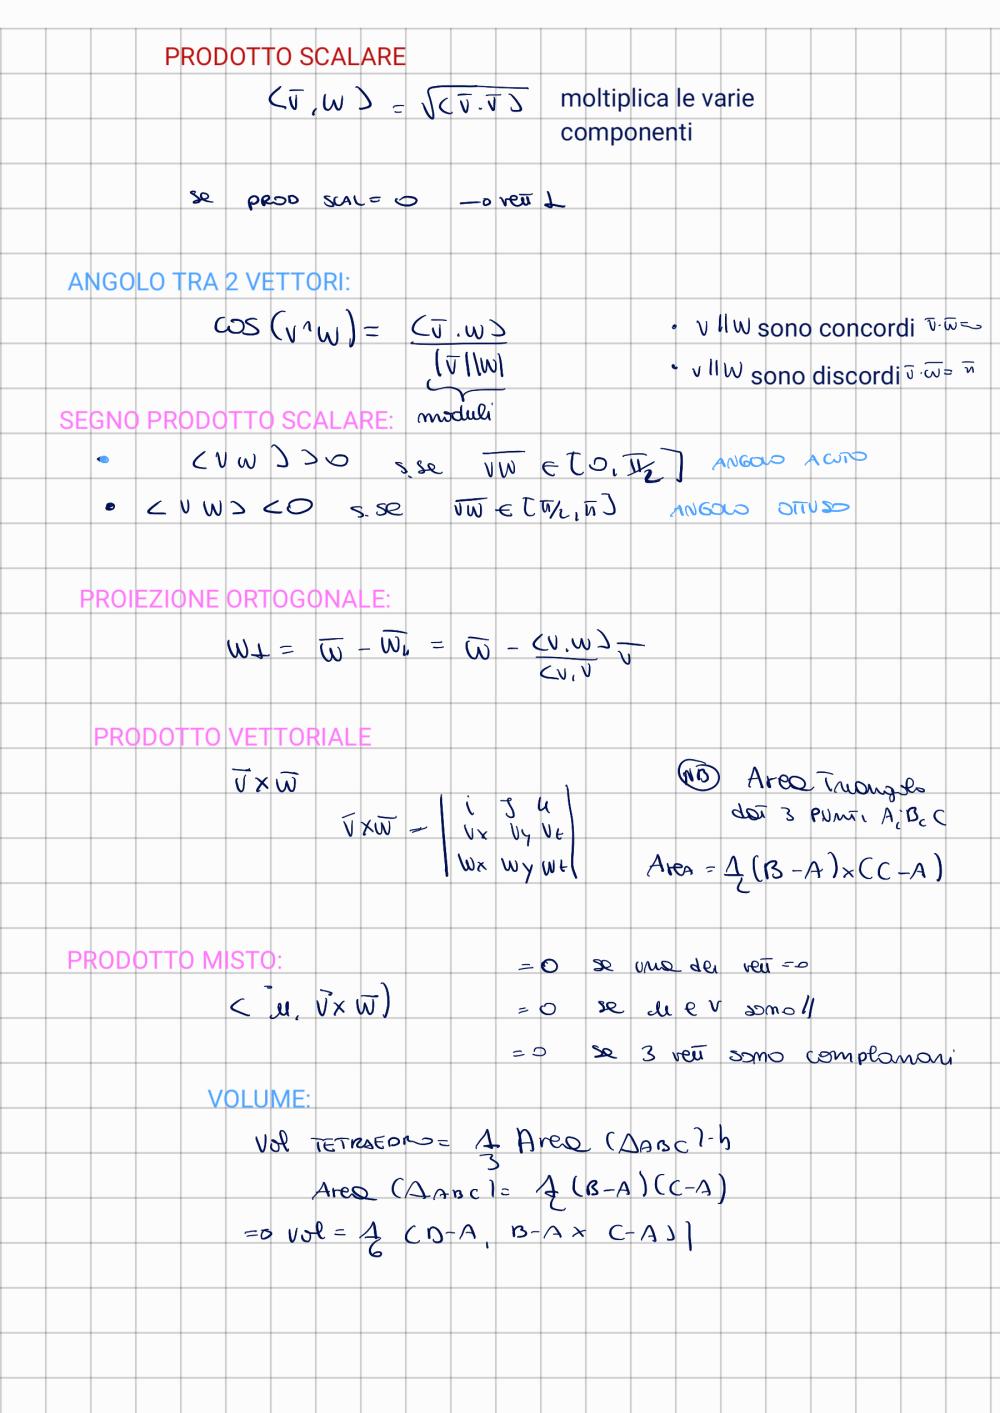 PRODOTTO SCALARE
⟨v̅, w⟩ = √⟨v̅·v̅⟩ moltiplica le varie
componenti
se PROD SCAL = 0 → vett ⊥
ANGOLO TRA 2 VETTORI:
cos(v^w) = ⟨v̅·w⟩ / |v̅||w|
moduli
• v || w sono concordi v̅·w̅=0
• v || w sono discordi v̅·w̅= π
SEGNO PRODOTTO SCALARE:
• ⟨v w⟩ > 0 s.se v̅w̅ ∈ [0, π/2] ANGOLO ACUTO
• ⟨v w⟩ < 0 s.se v̅w̅ ∈ [π/2, π] ANGOLO OTTUSO
PROIEZIONE ORTOGONALE:
w⊥ = w̅ - w̅ᵥ = w̅ - ⟨v.w⟩/⟨v,v v̅
PRODOTTO VETTORIALE
v̅ × w̅
v̅ × w̅ = | i j k
vx vy vz
wx wy wz |
NB Area Triangolo
dati 3 PUNTI A, B, C
Area = 1/2 (B-A)×(C-A)
PRODOTTO MISTO:
⟨u, v̅ × w̅⟩
= 0 se uno dei vett = 0
= 0 se u e v sono //
= 0 se 3 vett sono complanari
VOLUME:
Vol TETRAEDRO = 1/3 Area (△ABC)·h
Area (△ABC) = 1/2 (B-A)(C-A)
=> vol = 1/6 ⟨D-A, B-A × C-A⟩|